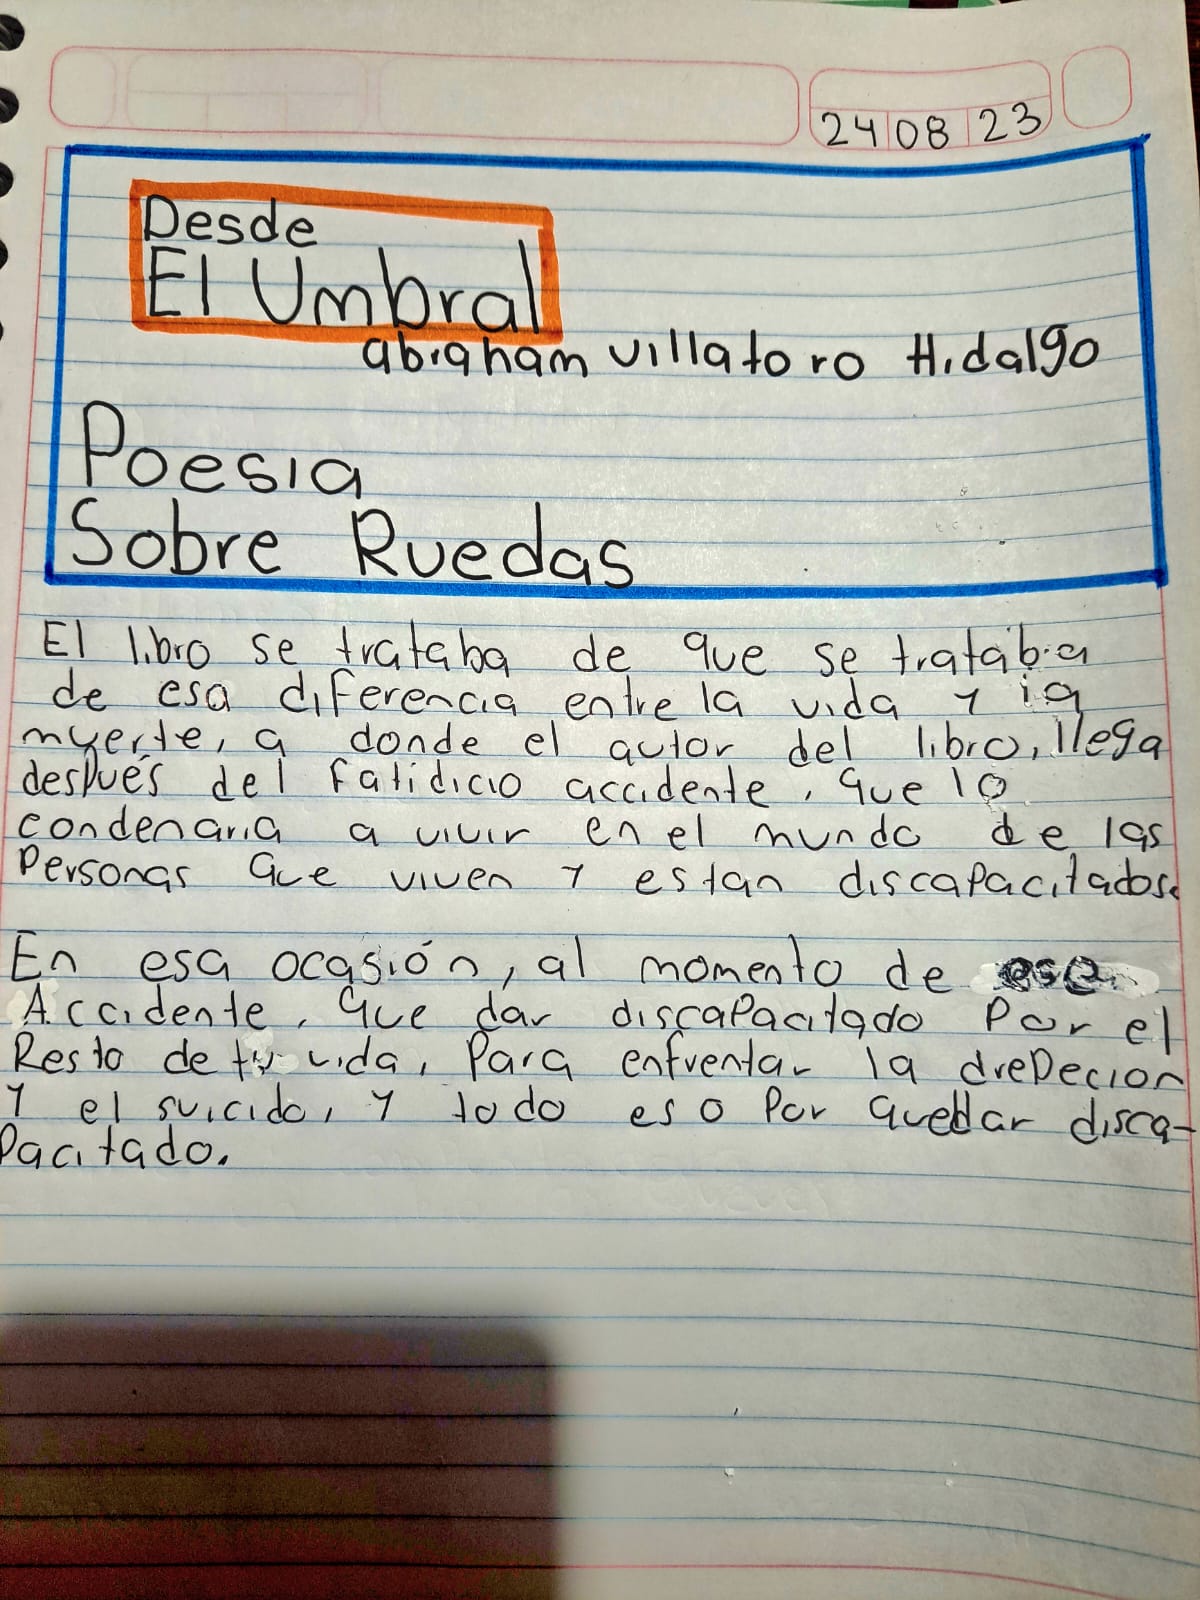 24 08 23
Desde
El Umbral
abraham villatoro Hidalgo
Poesia
Sobre Ruedas
El libro se trataba de que se trataba
de esa diferencia entre la vida y la
muerte, a donde el autor del libro, llega
después del fatidicio accidente, que lo
condenaria a vivir en el mundo de las
Personas que viven y estan discapacitados.
En esa ocasión, al momento de ese
Accidente, que dar discapacitado por el
Resto de tu vida, Para enfrentar la drepecion
y el suicido, y todo eso por quedar disca-
pacitado.